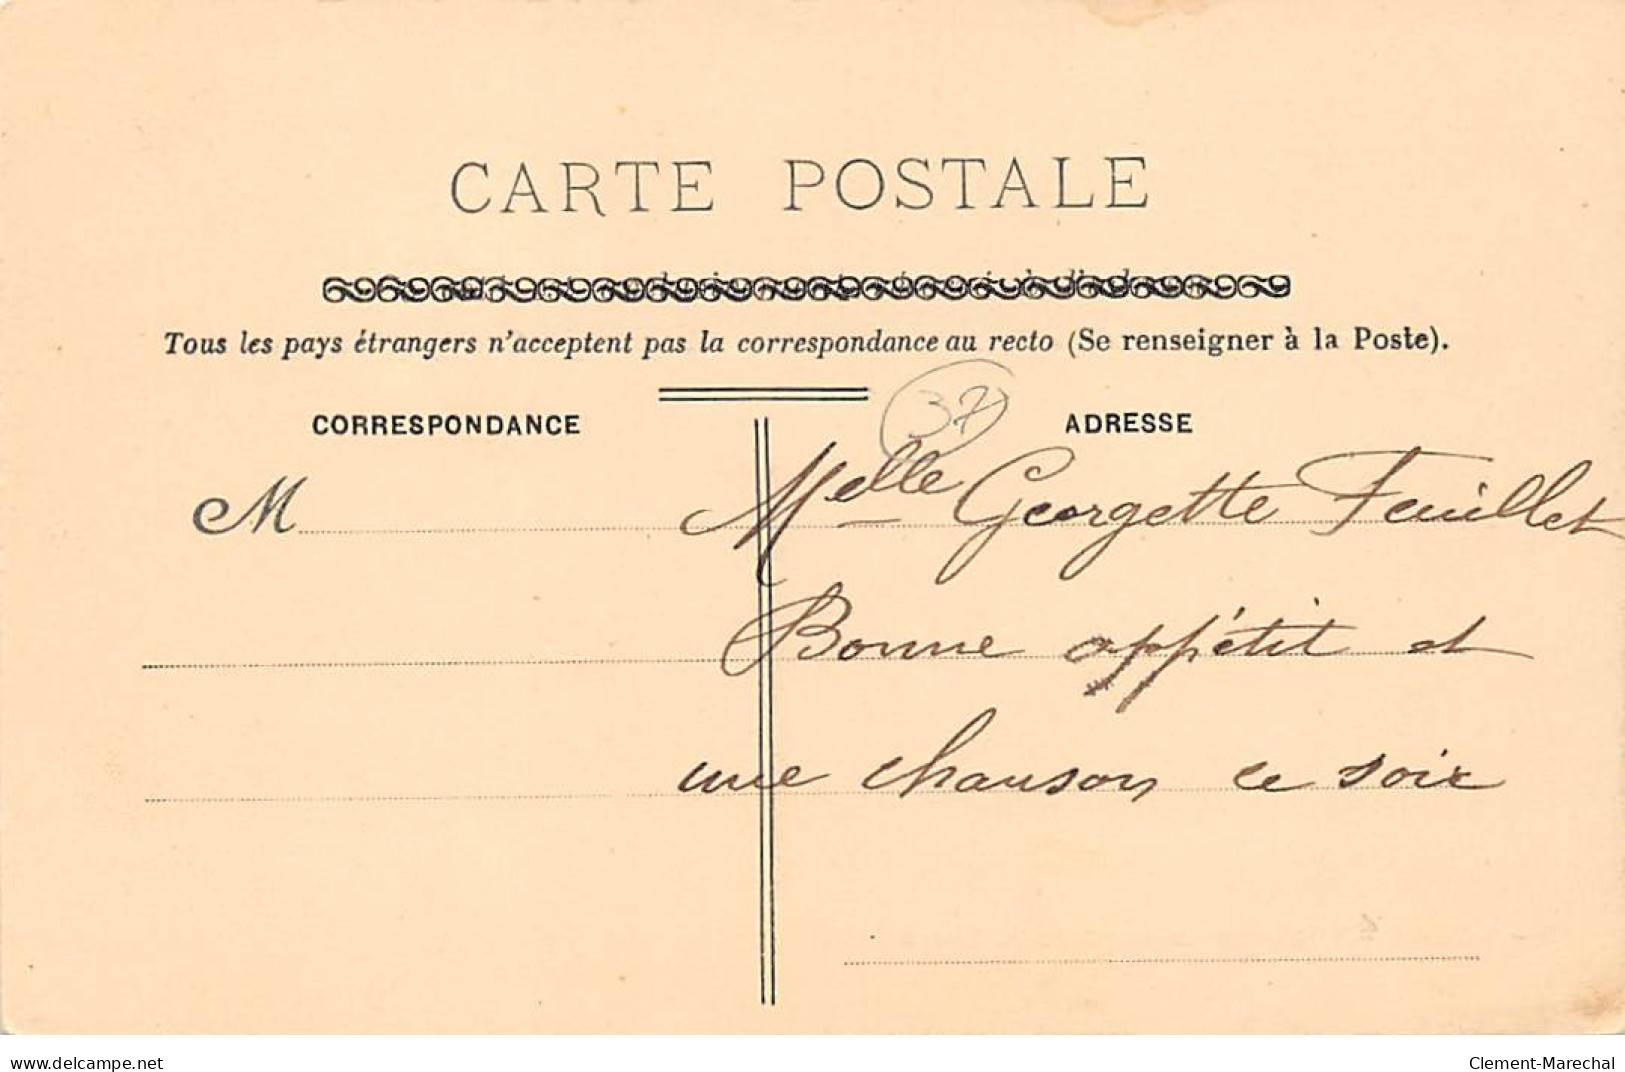 CARTE POSTALE
Tous les pays étrangers n'acceptent pas la correspondance au recto (Se renseigner à la Poste).
37
CORRESPONDANCE
ADRESSE
M
Melle Georgette Feuillet
Bonne appétit et
une chanson ce soir
www.delcampe.net
Clement-Marechal